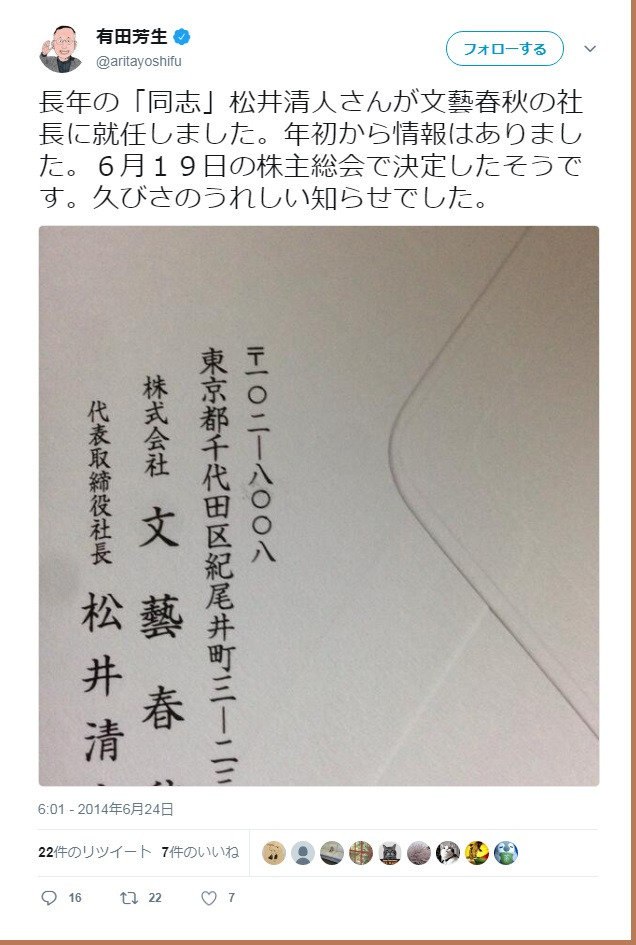 有田芳生
@aritayoshifu
フォローする
長年の「同志」松井清人さんが文藝春秋の社
長に就任しました。年初から情報はありまし
た。６月１９日の株主総会で決定したそうで
す。久びさのうれしい知らせでした。
〒一〇二―八〇〇八
東京都千代田区紀尾井町三―二三
株式会社 文藝春
代表取締役社長 松井清
6:01 - 2014年6月24日
22件のリツイート 7件のいいね
16 22 7